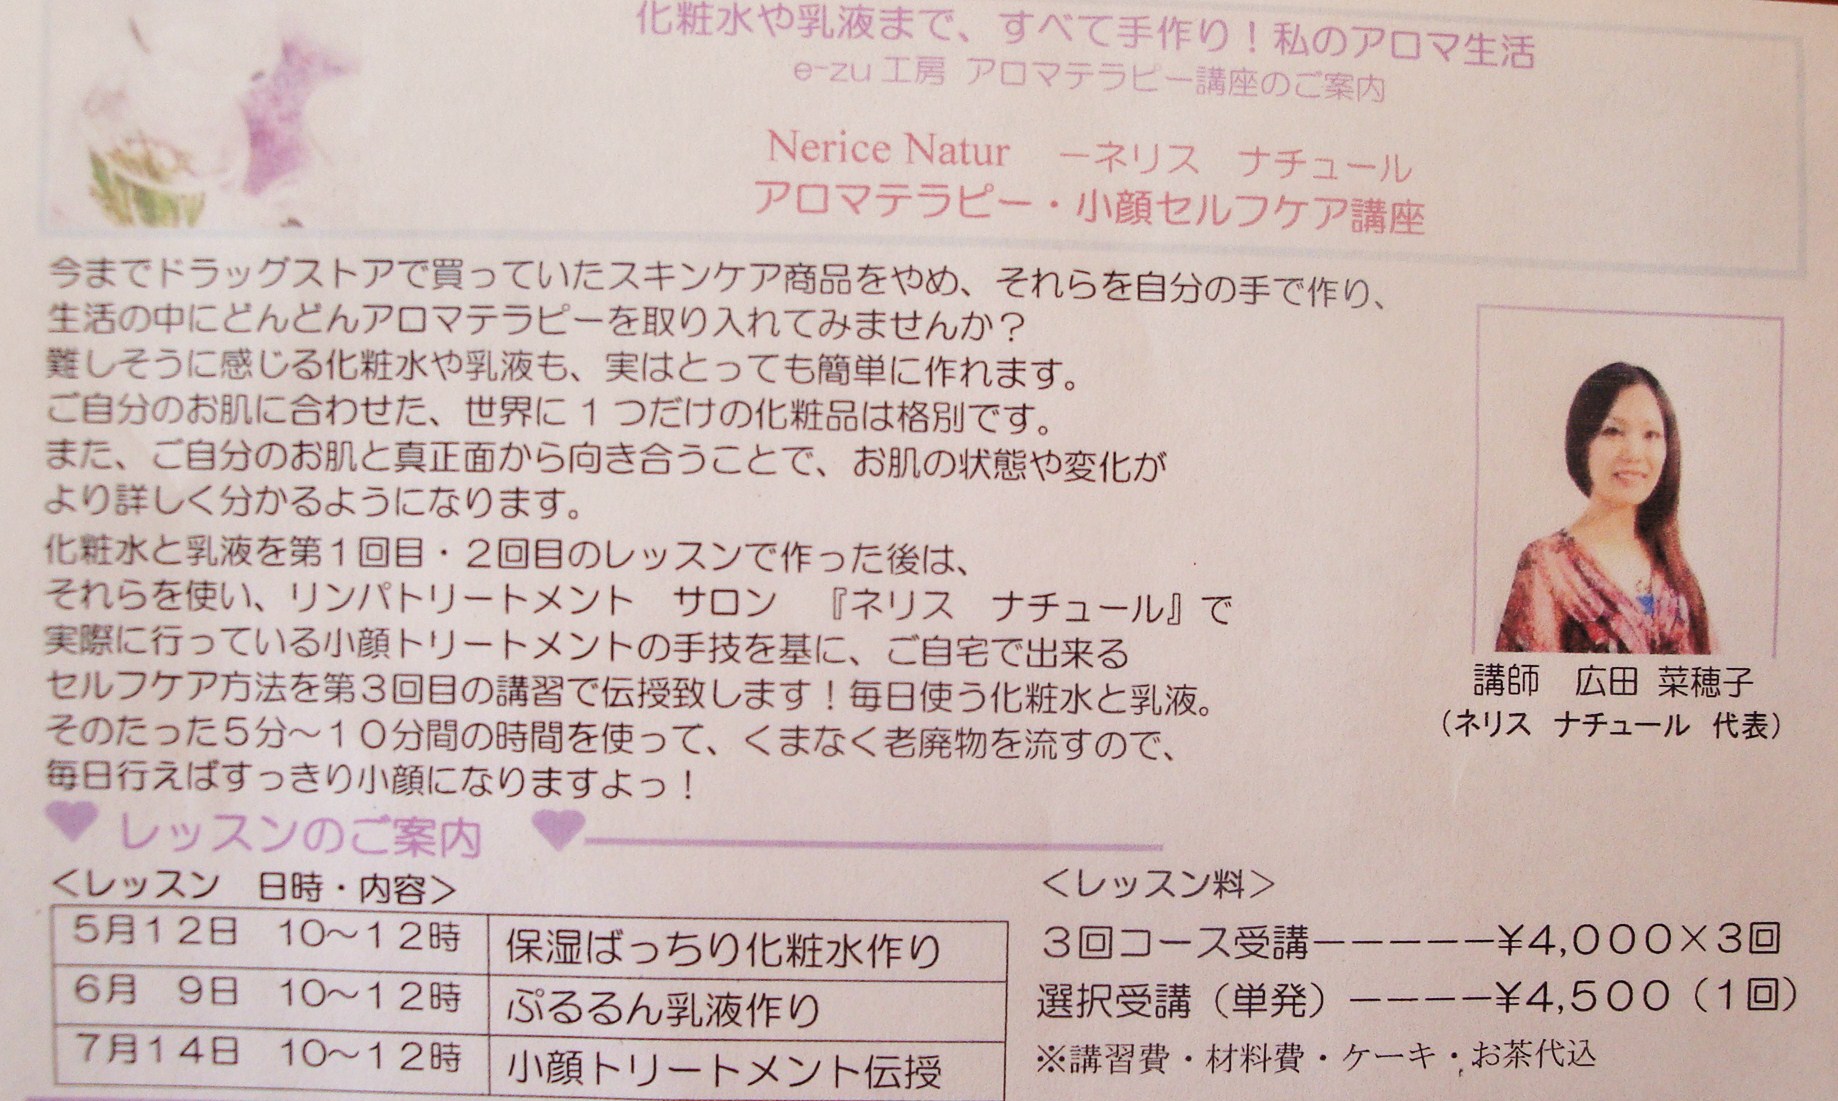 化粧水や乳液まで、すべて手作り！私のアロマ生活
e-zu工房 アロマテラピー講座のご案内
Nerice Natur －ネリス ナチュール
アロマテラピー・小顔セルフケア講座
今までドラッグストアで買っていたスキンケア商品をやめ、それらを自分の手で作り、
生活の中にどんどんアロマテラピーを取り入れてみませんか？
難しそうに感じる化粧水や乳液も、実はとっても簡単に作れます。
ご自分のお肌に合わせた、世界に１つだけの化粧品は格別です。
また、ご自分のお肌と真正面から向き合うことで、お肌の状態や変化が
より詳しく分かるようになります。
化粧水と乳液を第１回目・２回目のレッスンで作った後は、
それらを使い、リンパトリートメント サロン 『ネリス ナチュール』で
実際に行っている小顔トリートメントの手技を基に、ご自宅で出来る
セルフケア方法を第３回目の講習で伝授致します！毎日使う化粧水と乳液。
そのたった５分～１０分間の時間を使って、くまなく老廃物を流すので、
毎日行えばすっきり小顔になりますよっ！
講師 広田 菜穂子
（ネリス ナチュール 代表）
♥ レッスンのご案内 ♥
＜レッスン 日時・内容＞
５月１２日 １０～１２時 保湿ばっちり化粧水作り
６月 ９日 １０～１２時 ぷるるん乳液作り
７月１４日 １０～１２時 小顔トリートメント伝授
＜レッスン料＞
３回コース受講－－－－－¥４,０００×３回
選択受講（単発）－－－－¥４,５００（１回）
※講習費・材料費・ケーキ・お茶代込